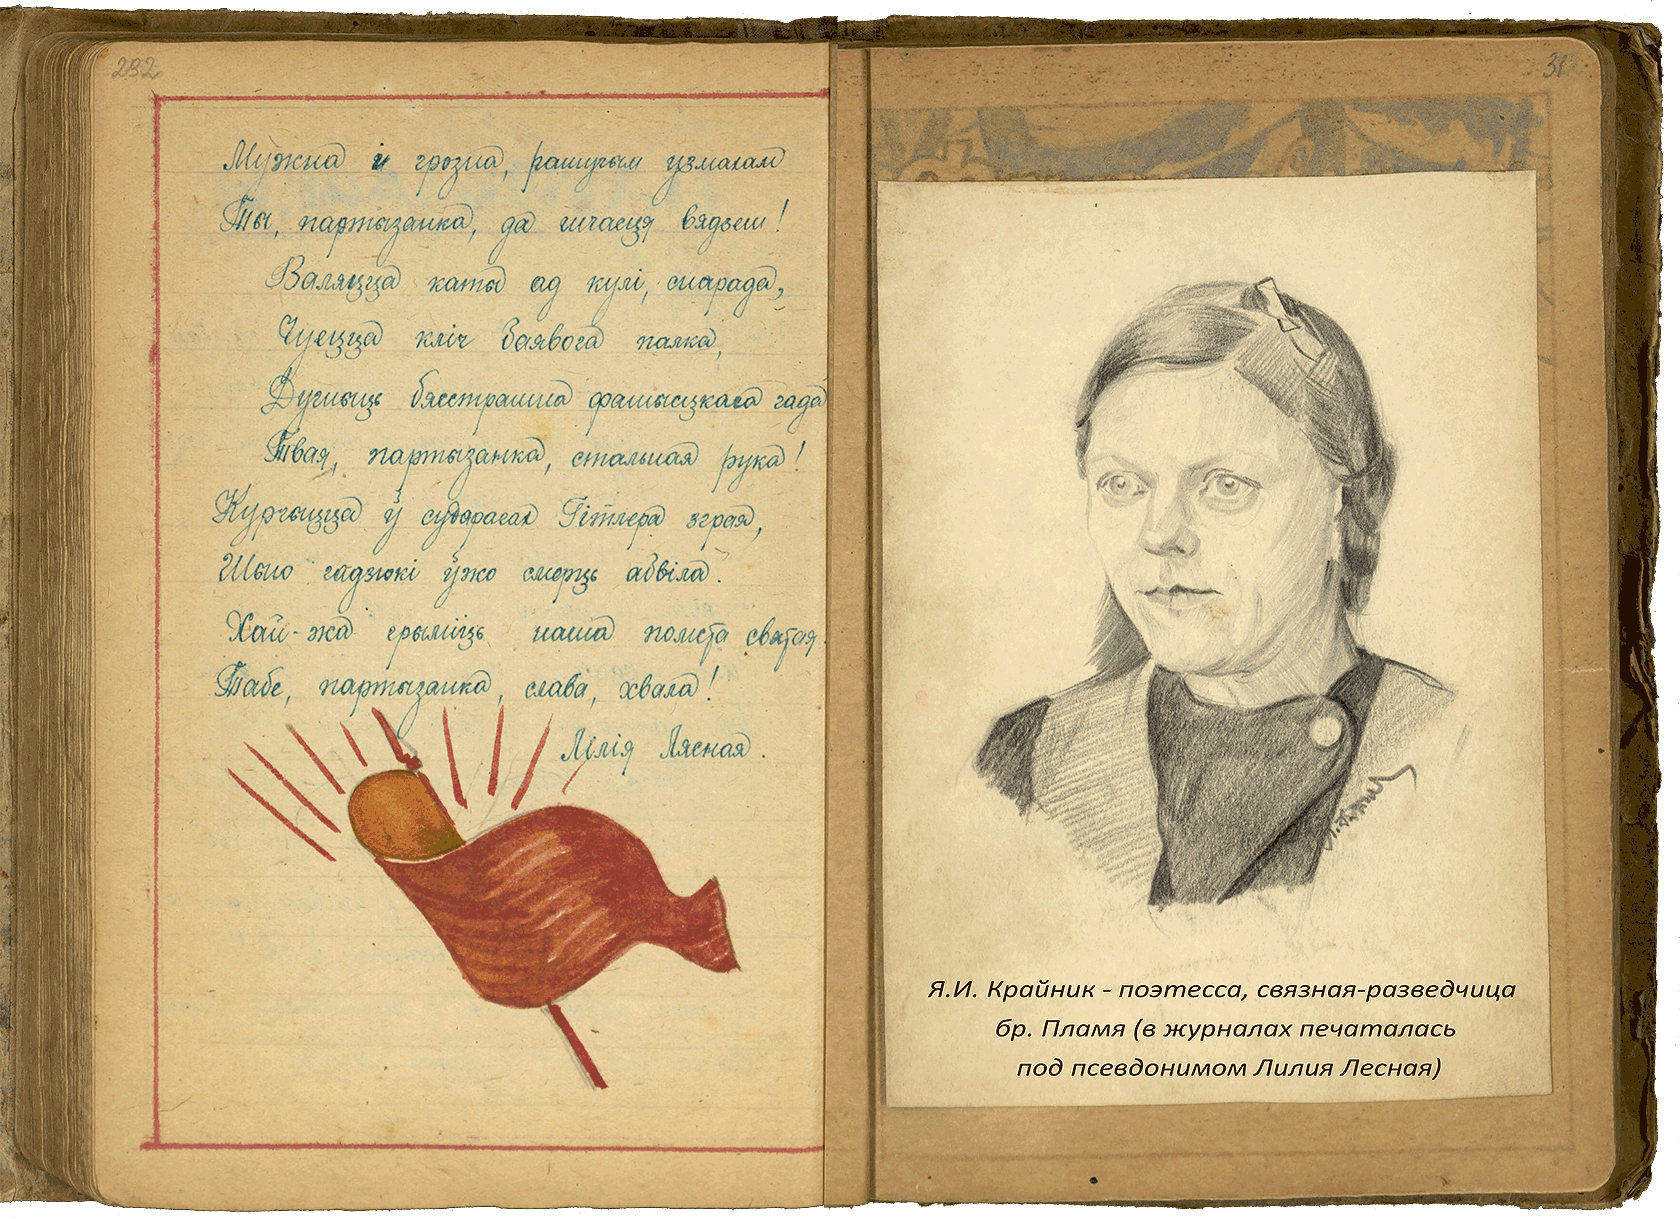 292
Мужна и грозна, рашучым узмахам
Ты, партызанка, да шчасця вядзеш!
Валяцца каты ад кулі, снарада,
Чуецца кліч баявога палка,
Душыць бясстрашна фашысцкага гада
Твая, партызанка, стальная рука!
Курчыцца ў сударагах Гітлера зграя,
Шыю гадзюкі ўжо смерць абвіла.
Хай-жа грыміць наша помста святая.
Табе, партызанка, слава, хвала!
Лілія Лясная.
31
Я.И. Крайник - поэтесса, связная-разведчица
бр. Пламя (в журналах печаталась
под псевдонимом Лилия Лесная)